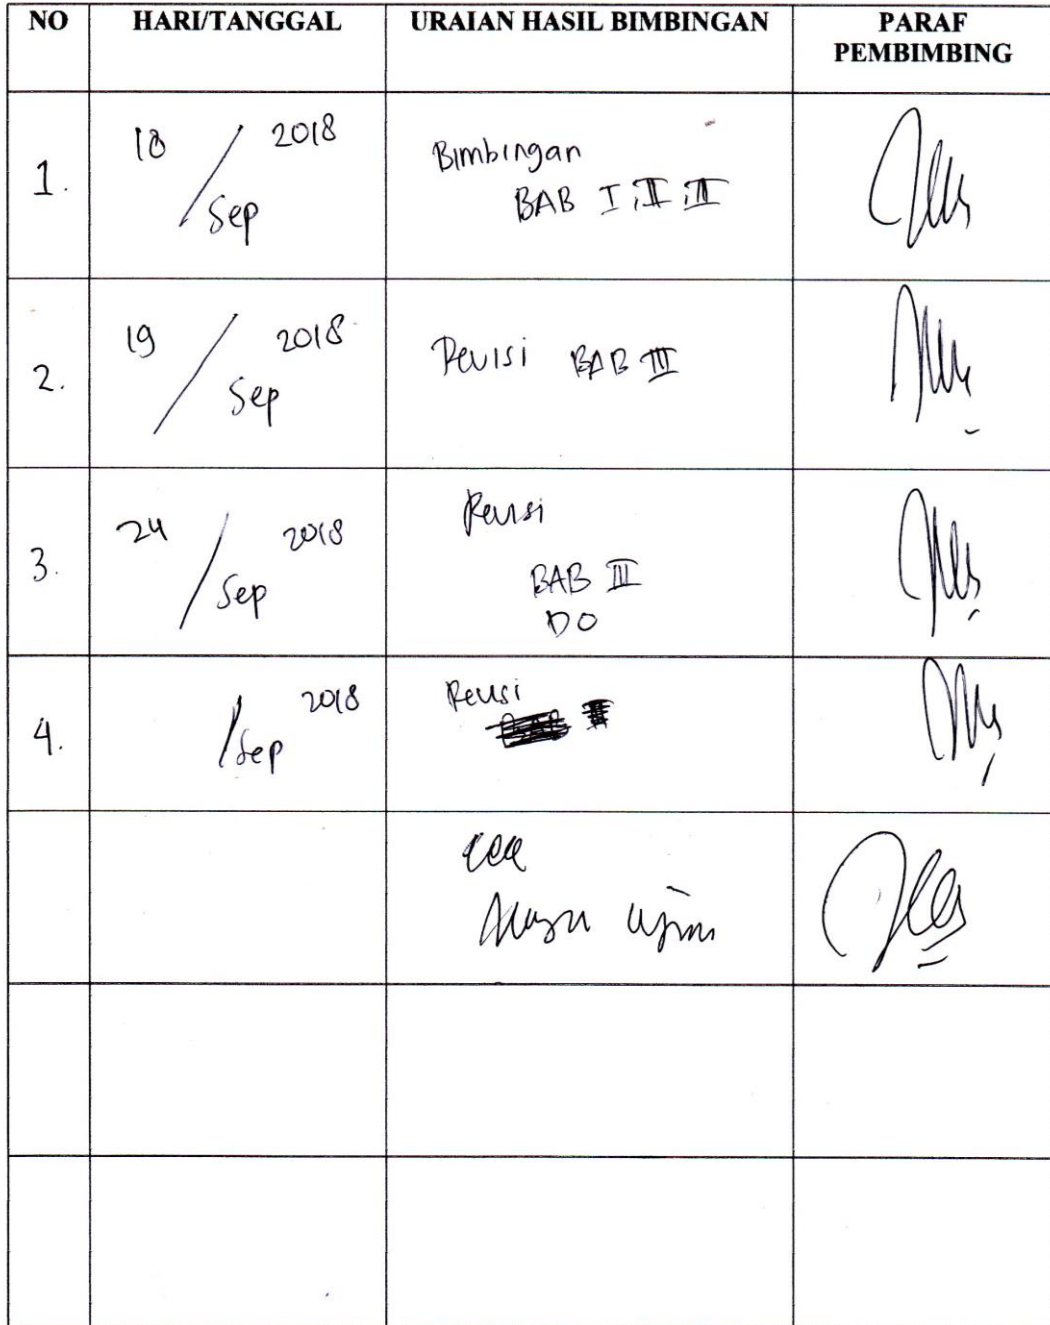 NO HARI/TANGGAL URAIAN HASIL BIMBINGAN PARAF
PEMBIMBING
1. 18 / Sep 2018 Bimbingan
BAB I, II, III
2. 19 / Sep 2018 Revisi BAB III
3. 24 / Sep 2018 Revisi
BAB III
DO
4. / Sep 2018 Revisi
ujian